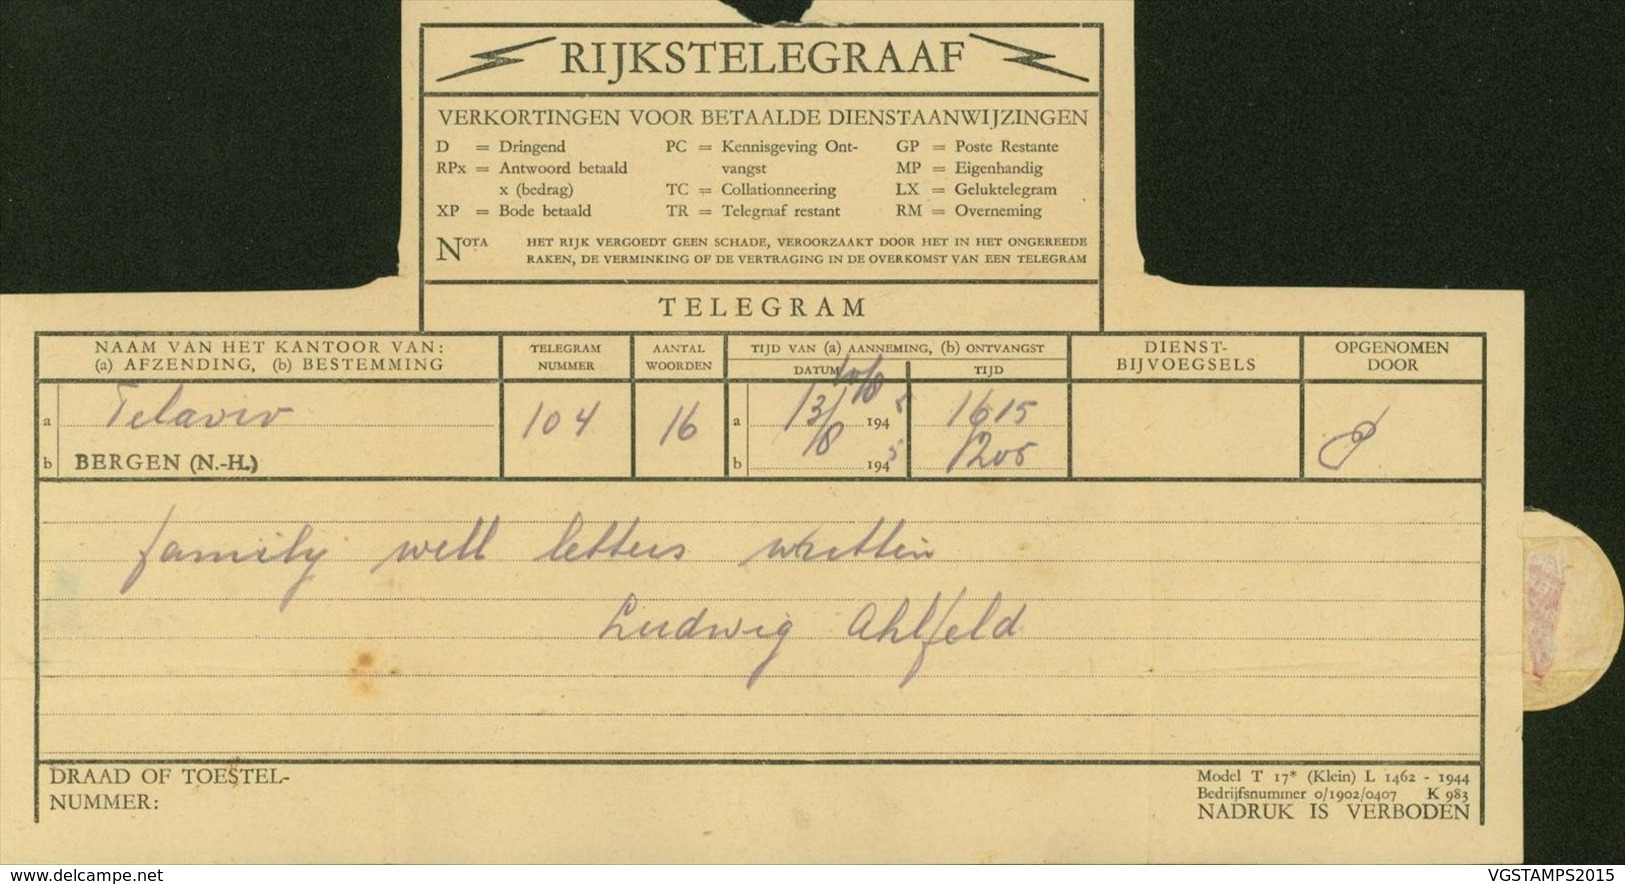 RIJKSTELEGRAAF
VERKORTINGEN VOOR BETAALDE DIENSTAANWIJZINGEN
D = Dringend
RPx = Antwoord betaald
x (bedrag)
XP = Bode betaald
PC = Kennisgeving Ont-
vangst
TC = Collationneering
TR = Telegraaf restant
GP = Poste Restante
MP = Eigenhandig
LX = Geluktelegram
RM = Overneming
NOTA HET RIJK VERGOEDT GEEN SCHADE, VEROORZAAKT DOOR HET IN HET ONGEREEDE
RAKEN, DE VERMINKING OF DE VERTRAGING IN DE OVERKOMST VAN EEN TELEGRAM
TELEGRAM
NAAM VAN HET KANTOOR VAN:
(a) AFZENDING, (b) BESTEMMING
TELEGRAM
NUMMER
AANTAL
WOORDEN
TIJD VAN (a) AANNEMING, (b) ONTVANGST
DATUM
TIJD
DIENST-
BIJVOEGSELS
OPGENOMEN
DOOR
a Telaviv
104
16
a 13/8 1945
1615
b BERGEN (N.-H.)
b 1945
1205
family well letters written
Ludwig Ahlfeld
DRAAD OF TOESTEL-
NUMMER:
Model T 17* (Klein) L 1462 - 1944
Bedrijfsnummer 0/1902/0407 K 983
NADRUK IS VERBODEN
www.delcampe.net
VGSTAMPS2015